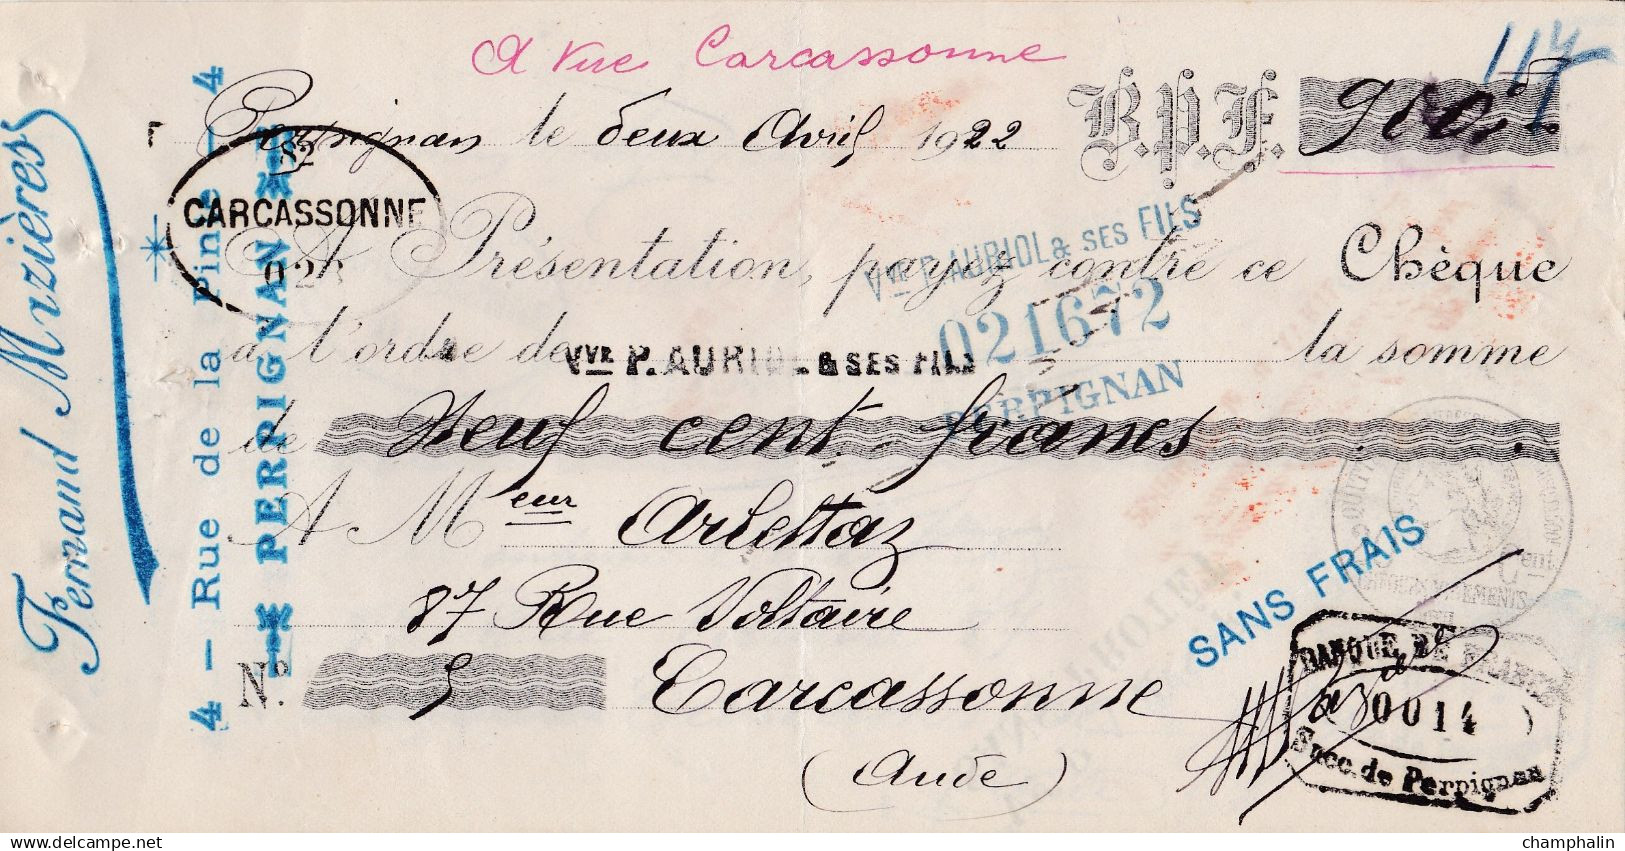 A vue Carcassonne
114
Perpignan le deux Avril 1922 B.P.F. 900
CARCASSONNE
A Présentation, payez contre ce Chèque
Vve P. AURIOL & SES FILS
021672
PERPIGNAN
à l'ordre de Vve P. AURIOL & SES FILS la somme
de Neuf cent francs
A Meur Arlettaz
87 Rue Voltaire
No. 5 Carcassonne
(Aude)
SANS FRAIS
BANQUE DE FRANCE
0014
Succ. de Perpignan
Fernand Mazières
4 — Rue de la Pine — 4
PERPIGNAN
delcampe.net
champhalin